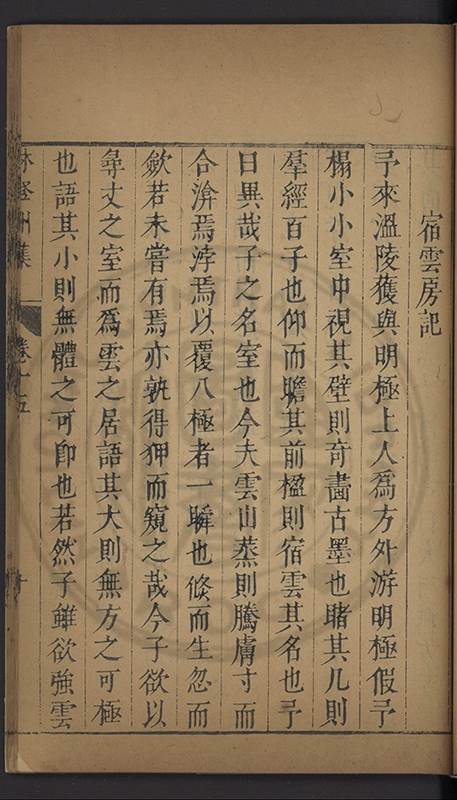 宿雲房記
予來溫陵獲與明極上人為方外游明極假予
榻小小室中視其壁則奇畵古墨也睹其几則
羣經百子也仰而瞻其前楹則宿雲其名也予
曰異哉子之名室也今夫雲山蒸則騰膚寸而
合渰焉浡焉以覆八極者一瞬也倏而生忽而
歛若未嘗有焉亦孰得狎而窺之哉今子欲以
尋丈之室而為雲之居語其大則無方之可極
也語其小則無體之可即也若然子雖欲強雲
林登州集 卷十五